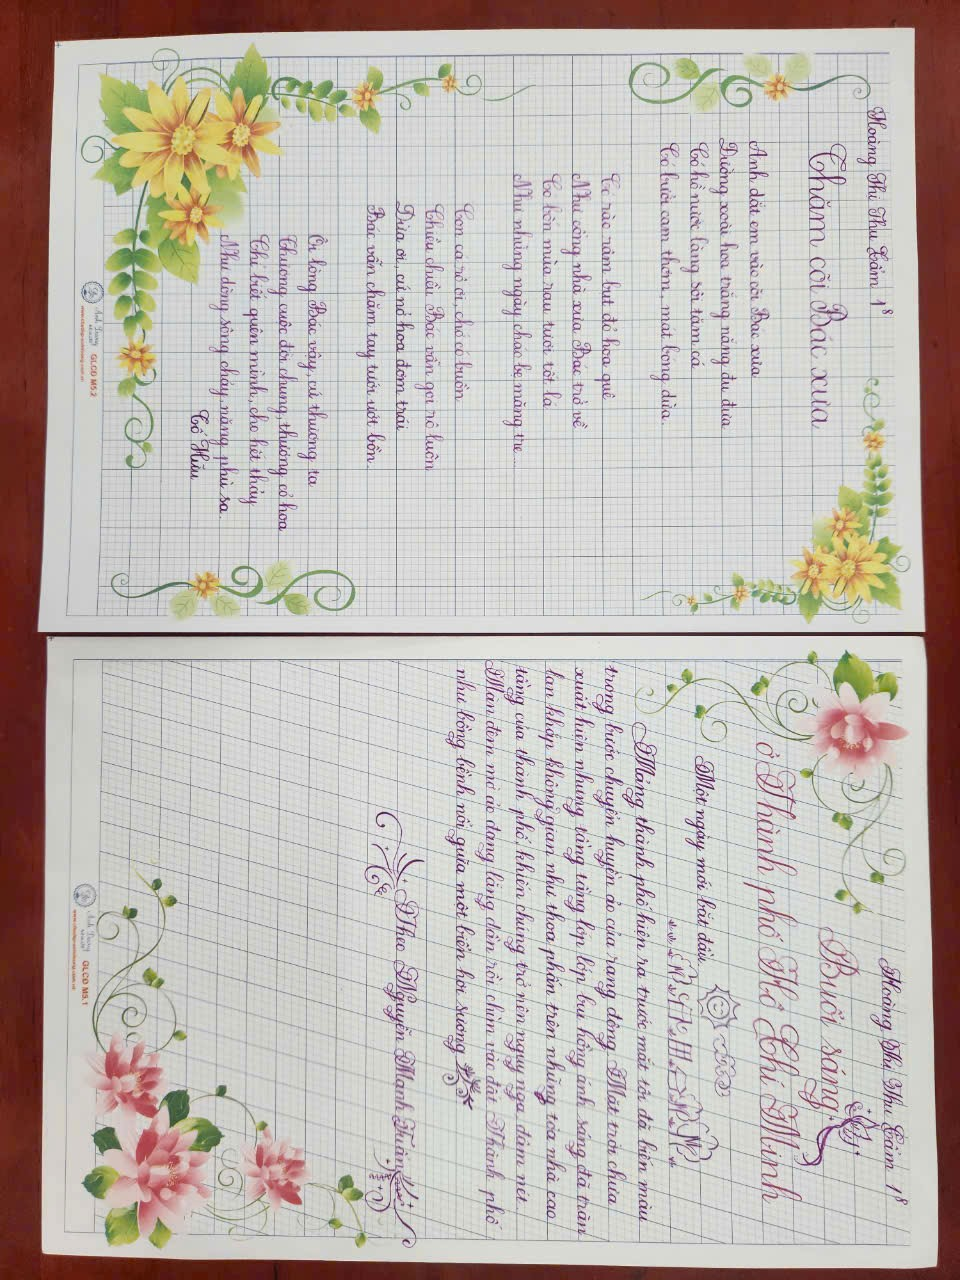 Hoàng Thị Thu Cầm 1⁸
Thăm cõi Bác xưa
Anh dắt em vào cõi Bác xưa
Đường xoài hoa trắng nắng đu đưa
Có hồ nước lặng sôi tăm cá
Có bưởi cam thơm, mát bóng dừa.
Có rào râm bụt đỏ hoa quê
Như cổng nhà xưa Bác trở về
Có bốn mùa rau tươi tốt lá
Như những ngày cháo bẹ măng tre...
Con cá rô ơi, chớ có buồn
Chiều chiều Bác vẫn gọi rô luôn
Dừa ơi, cứ nở hoa đơm trái
Bác vẫn chăm tay tưới ướt bồn.
Ôi lòng Bác vậy, cứ thương ta
Thương cuộc đời chung, thương cỏ hoa
Chỉ biết quên mình, cho hết thảy
Như dòng sông chảy, nặng phù sa.
Tố Hữu
Ánh Dương
www.chudepanhduong.com.vn
GLCD M5.2
Hoàng Thị Thu Cầm 1⁸
Buổi sáng
ở Thành phố Hồ Chí Minh
Một ngày mới bắt đầu.
Mảng thành phố hiện ra trước mắt tôi đã biến màu
trong bước chuyển huyền ảo của rạng đông. Mặt trời chưa
xuất hiện nhưng tầng tầng lớp lớp bụi hồng ánh sáng đã tràn
lan khắp không gian như thoa phấn trên những tòa nhà cao
tầng của thành phố, khiến chúng trở nên nguy nga, đậm nét.
Màn đêm mờ ảo đang lắng dần rồi chìm vào đất. Thành phố
như bồng bềnh nổi giữa một biển hơi sương.
Theo Nguyễn Mạnh Thắng
Ánh Dương
GLCD M5.1